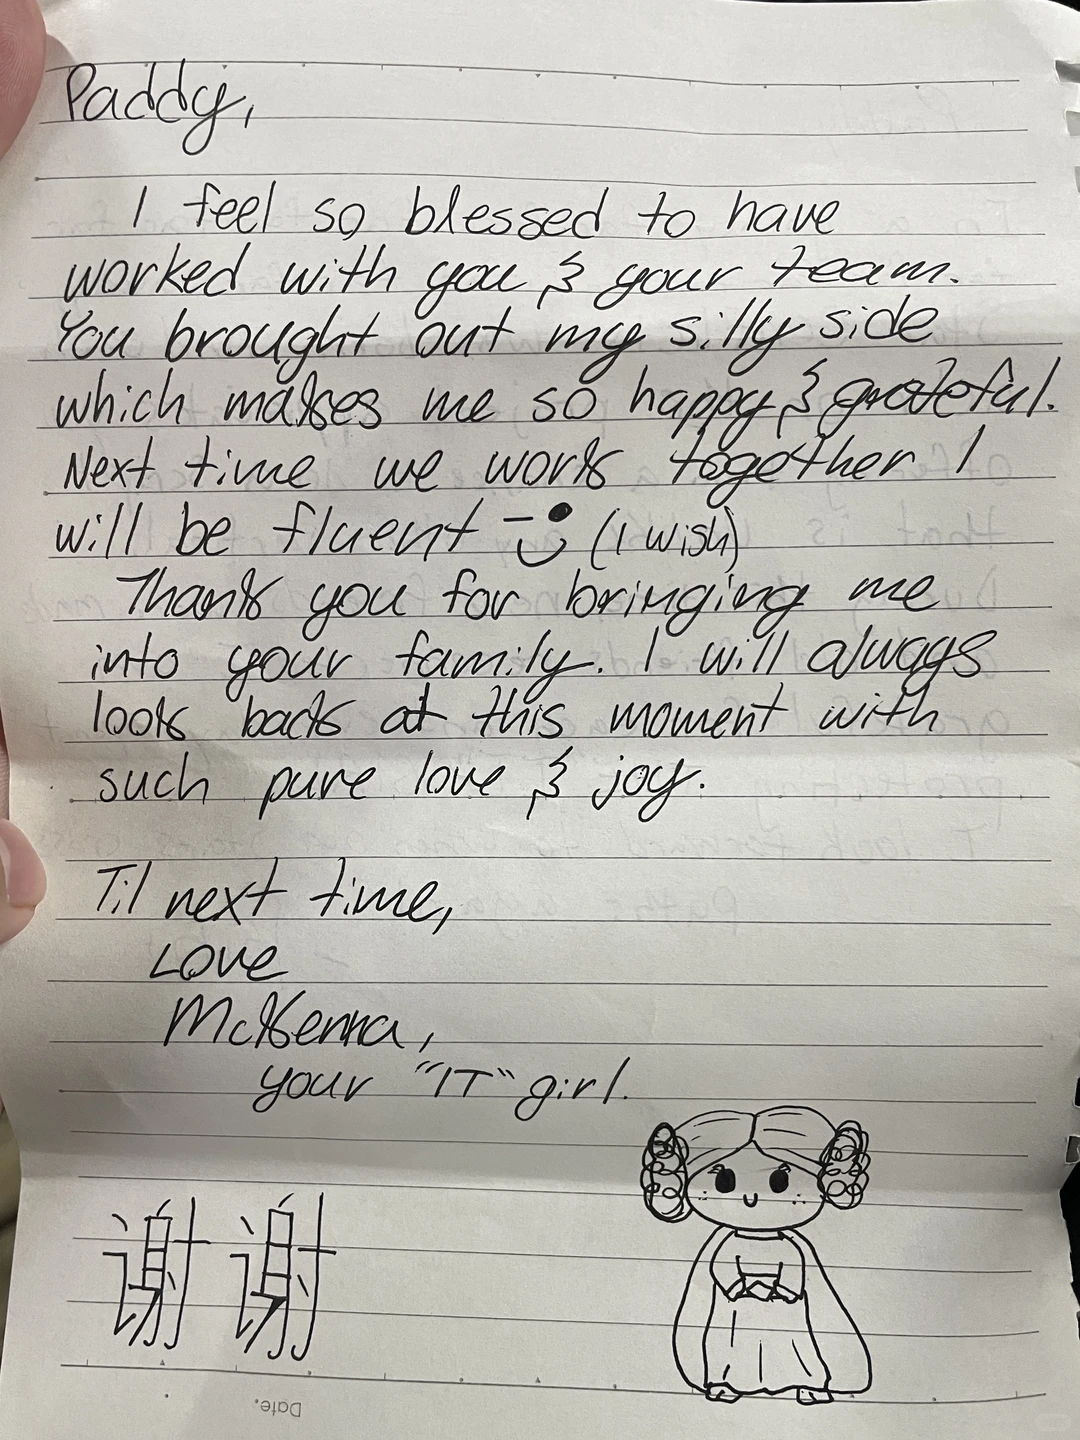 Paddy,
I feel so blessed to have
worked with you & your team.
You brought out my silly side
which makes me so happy & grateful.
Next time we work together I
will be fluent (I wish)
Thank you for bringing me
into your family. I will always
look back at this moment with
such pure love & joy.
Til next time,
Love
McKenna,
your "IT" girl.
谢谢
Date.